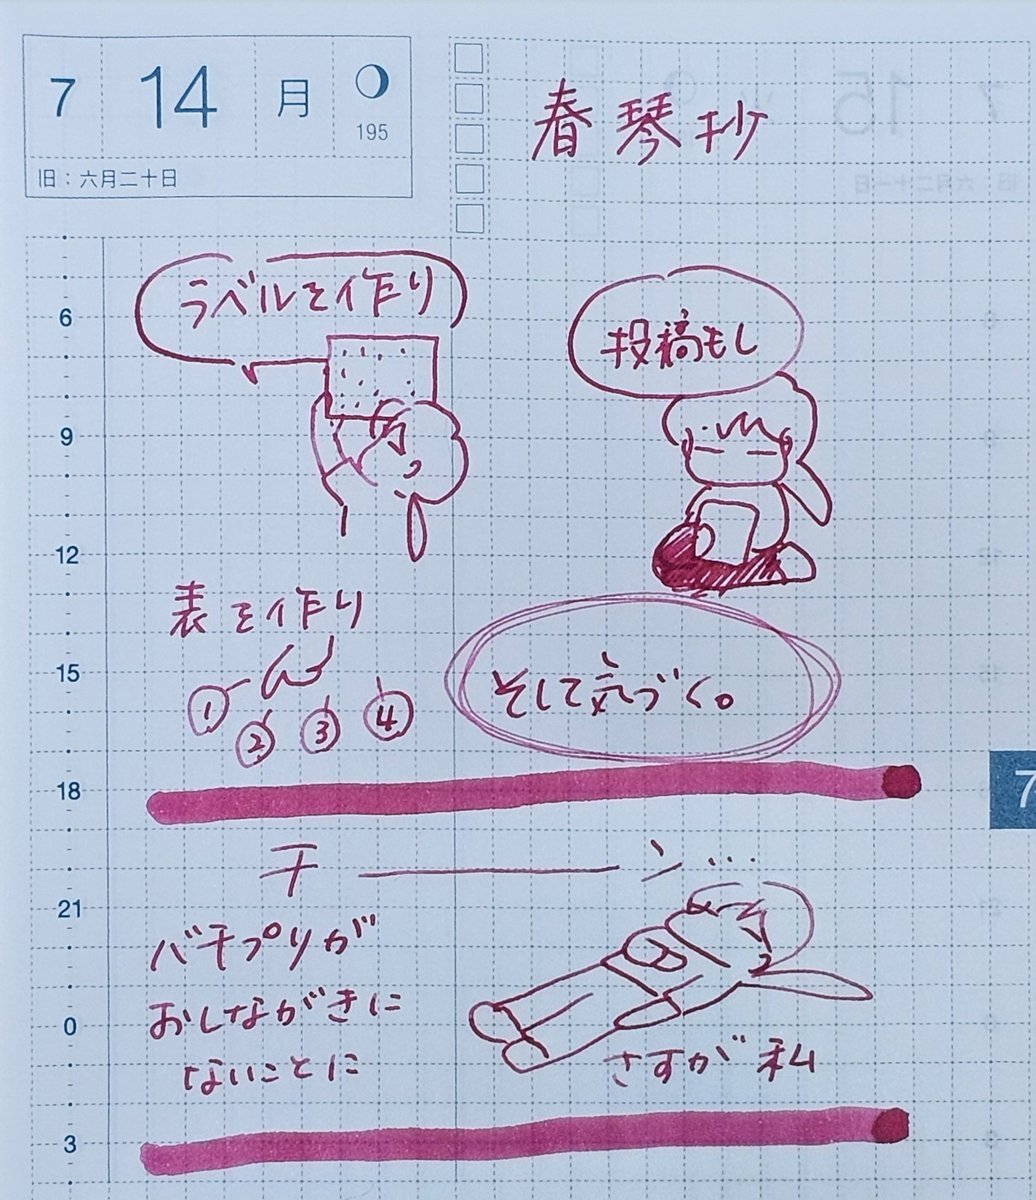 7 14 月
195
旧：六月二十日
春琴抄
ラベルを作り
投稿もし
表を作り
① ② ③ ④
そして気づく。
チーン…
バチプリが
おしながきに
ないことに
さすが私
6
9
12
15
18
21
0
3
7